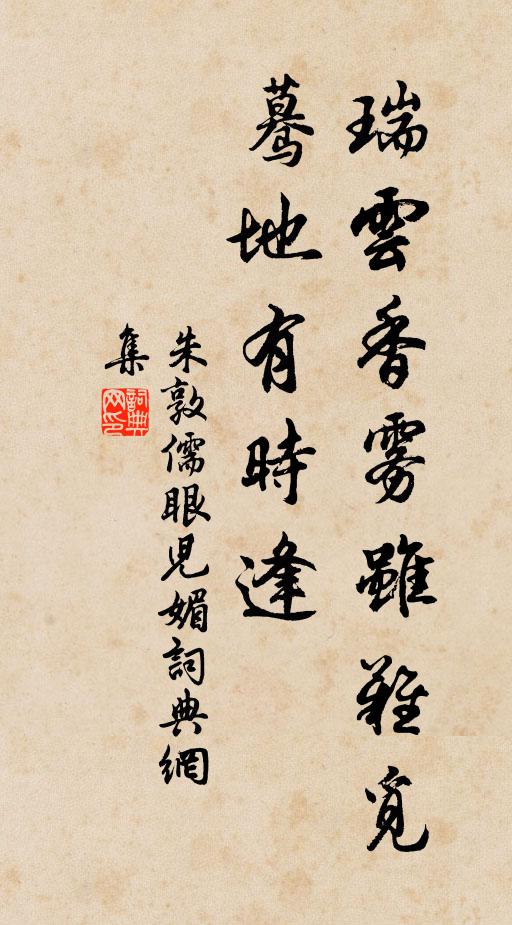 瑞雲香雾雖難覓
驀地有時逢
朱敦儒眼児媚詞典網
集
詞典
网印